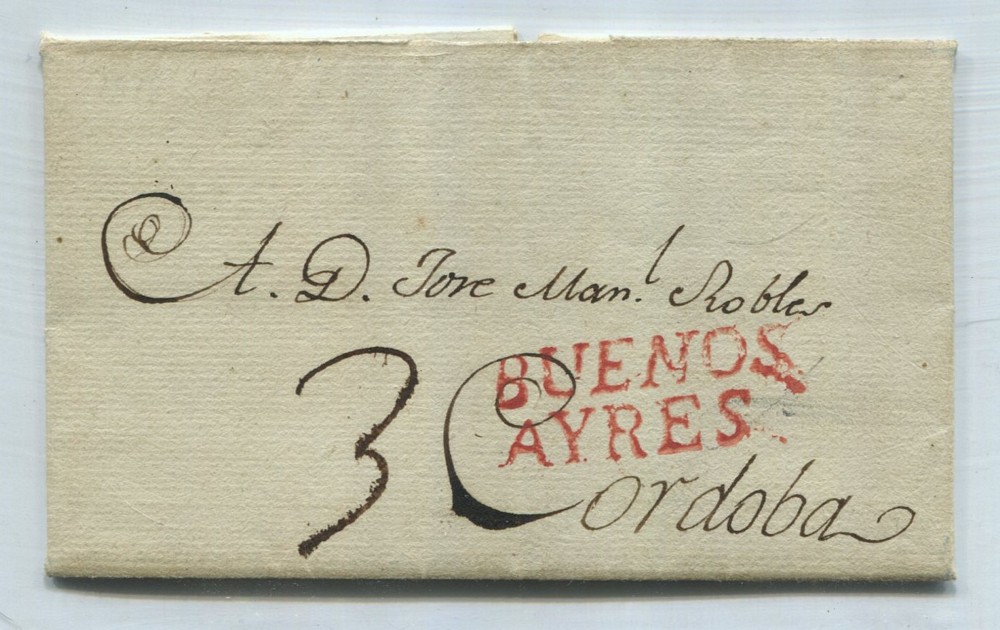 A. D. Jose Man.l Robles
3
BUENOS
AYRES
Cordoba